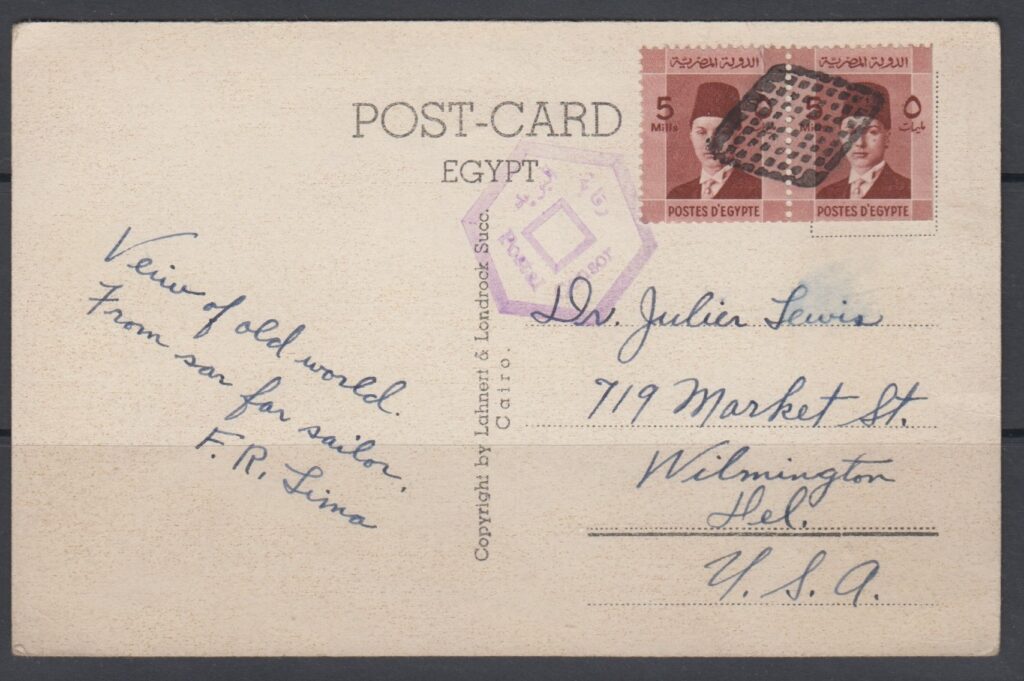 POST-CARD
EGYPT
الدولة المصرية
الدولة المصرية
5
Mills
5
Mills
٥
مليمات
POSTES D'EGYPTE
POSTES D'EGYPTE
رقابة
البريد
Postal
Copyright by Lahnert & Londrock Succ.
Cairo.
Veiw of old world.
From sar far sailor.
F. R. Lima
Dr. Julier Lewis
719 Market St.
Wilmington
Del.
U. S. A.